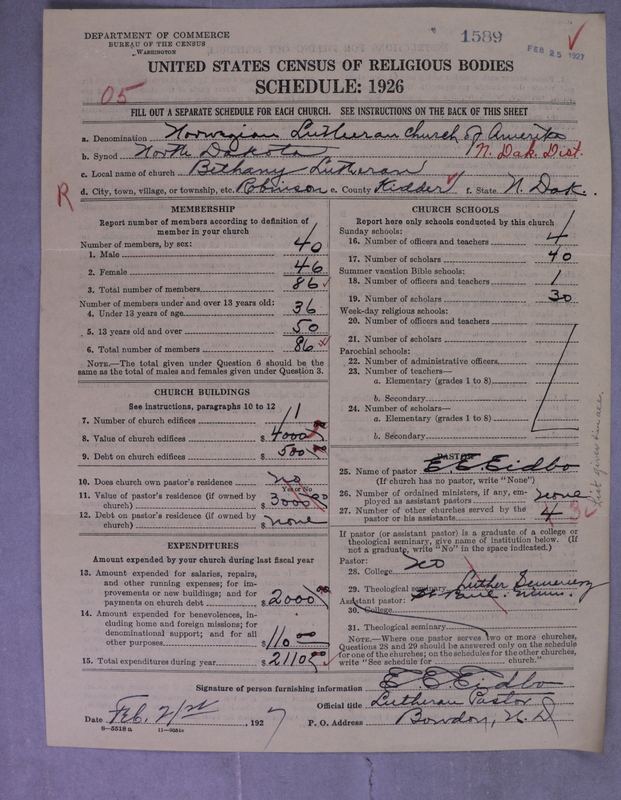 DEPARTMENT OF COMMERCE
BUREAU OF THE CENSUS
WASHINGTON
1589
FEB 25 1927
UNITED STATES CENSUS OF RELIGIOUS BODIES
SCHEDULE: 1926
05
FILL OUT A SEPARATE SCHEDULE FOR EACH CHURCH. SEE INSTRUCTIONS ON THE BACK OF THIS SHEET
a. Denomination Norwegian Lutheran Church of America
b. Synod North Dakota N. Dak. Dist.
c. Local name of church Bethany Lutheran
R
d. City, town, village, or township, etc. Robinson e. County Kidder f. State N. Dak.
MEMBERSHIP
Report number of members according to definition of member in your church
Number of members, by sex:
1. Male 40
2. Female 46
3. Total number of members 86
Number of members under and over 13 years old:
4. Under 13 years of age 36
5. 13 years old and over 50
6. Total number of members 86
NOTE.—The total given under Question 6 should be the
same as the total of males and females given under Question 3.
CHURCH BUILDINGS
See instructions, paragraphs 10 to 12
7. Number of church edifices 1
8. Value of church edifices $ 4000
9. Debt on church edifices $ 500
10. Does church own pastor's residence? no
Yes or No
11. Value of pastor's residence (if owned by
church) $ 3000
12. Debt on pastor's residence (if owned by
church) $ none
EXPENDITURES
Amount expended by your church during last fiscal year
13. Amount expended for salaries, repairs,
and other running expenses; for im-
provements or new buildings; and for
payments on church debt $ 2000
14. Amount expended for benevolences, in-
cluding home and foreign missions; for
denominational support; and for all
other purposes $ 110 00
15. Total expenditures during year $ 2110 00
CHURCH SCHOOLS
Report here only schools conducted by this church
Sunday schools:
16. Number of officers and teachers 4
17. Number of scholars 40
Summer vacation Bible schools:
18. Number of officers and teachers 1
19. Number of scholars 30
Week-day religious schools:
20. Number of officers and teachers
21. Number of scholars
Parochial schools:
22. Number of administrative officers
23. Number of teachers—
a. Elementary (grades 1 to 8)
b. Secondary
24. Number of scholars—
a. Elementary (grades 1 to 8)
b. Secondary
PASTOR
25. Name of pastor E. E. Eidbo
(If church has no pastor, write "None")
26. Number of ordained ministers, if any, em-
ployed as assistant pastors none
27. Number of other churches served by the
pastor or his assistants 4 3
If pastor (or assistant pastor) is a graduate of a college or
theological seminary, give name of institution below. (If
not a graduate, write "No" in the space indicated.)
Pastor:
28. College
29. Theological seminary Luther Seminary
St. Paul. Minn.
Assistant pastor:
30. College
31. Theological seminary
NOTE.—Where one pastor serves two or more churches,
Questions 28 and 29 should be answered only on the schedule
for one of the churches; on the schedules for the other churches,
write "See schedule for church."
Signature of person furnishing information E E Eidbo
Official title Lutheran Pastor
Date Feb. 21st, 1927 P. O. Address Bowdon, N. D
8—5518a 11—9051c